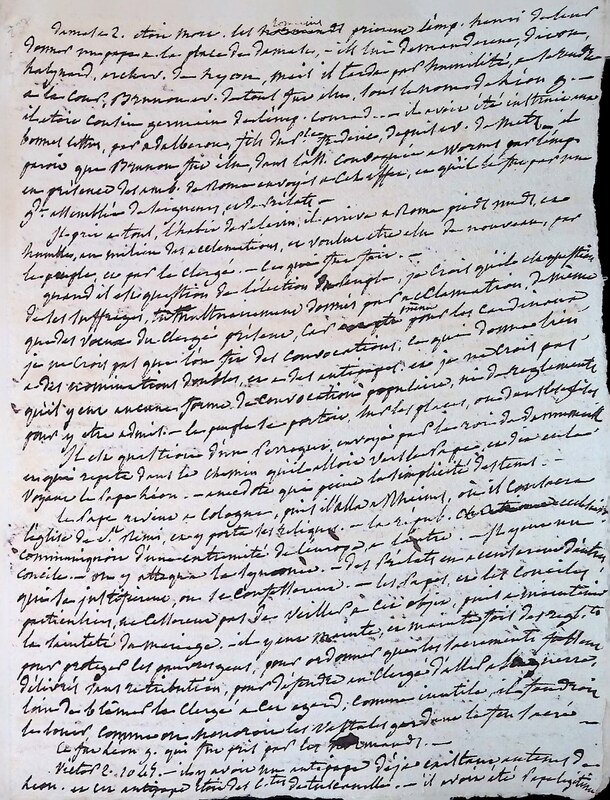 damase 2. étoit mort. les romains prierent l'emp. henri de leur
donner un pape a la place de damase, - ils lui demanderent, dit-on,
halynard, archev. de Lyon, mais il tarda par humilité, a se rendre
a la Cour, Brunon ev. de toul fut elu, sous le nom de Léon 9 -
il etoit Cousin germain de l'emp. Conrad. - il avoit été instruit aux
bonnes lettres, par adalberon, fils du frederic, depuis ev. de Metz. il
paroit que Brunon fut élu, dans l'ass. Convoquée a Worms par l'emp.
en présence des amb. de Rome envoyés a cet effet, et qu'il le fut par une
gde assemblée de Seigneurs, et de Prélats -
Il prit a toul, l'habit de pelerin, il arriva a Rome pieds nuds, et
humble, au milieu des acclamations, et voulut être elu de nouveau, par
le peuple, et par le Clergé. - Ce qui fut fait. -
quand il est question de l'election du peuple, je crois qu'il est question
de ses suffrages, tumultuairement donnés par acclamation, de même
que des voeux du Clergé présent, Car même pour les Cardinaux
je ne crois pas que l'on fit des convocations, ce qui donna lieu
a des nominations doubles, et a des antipapes, et je ne crois pas
qu'il y eut aucune forme de convocation populaire, ni de reglements
pour y être admis. - le peuple se portoit sur les places, ou dans les églises
Il est question d'un perroquet, envoyé par le roi de dannemarck
et qui repeta dans le chemin qu'il alloit voir le Pape, et dit cela
voyant le Pape Léon. - anecdote qui peint la simplicité des tems. -
le Pape revint a Cologne, puis il alla a Rheims, où il Consacra
l'église de St. Remi, et y porta ses reliques. - la répub.
communiquoit d'une extremité de l'europe a l'autre. - Il y eut un
concile. - on y attaqua la Symonie. - des Prélats en accuserent d'autres
qui se justifierent, ou se Confesserent. - les Papes, et les Conciles
particuliers, ne cesserent pas de veiller a cet objet, puis a maintenir
la sainteté du mariage. - il y eut mainte, et mainte fois des regl.ts
pour proteger les pauvres gens, pour ordonner que les sacrements fussent
délivrés sans retribution, pour défendre au Clergé d'aller a la guerre,
loin de blâmer le Clergé a cet egard, comme inutile, il faudroit
les louer, comme on honoroit les Vestales gardant le feu sacré -
Ce fut Léon 9. qui fut pris par les normands. -
Victor 2. - il y avoit un antipape déjà existant au tems de
Léon. et cet antipape étoit des C.tes de tusculanelle. - il avoit été